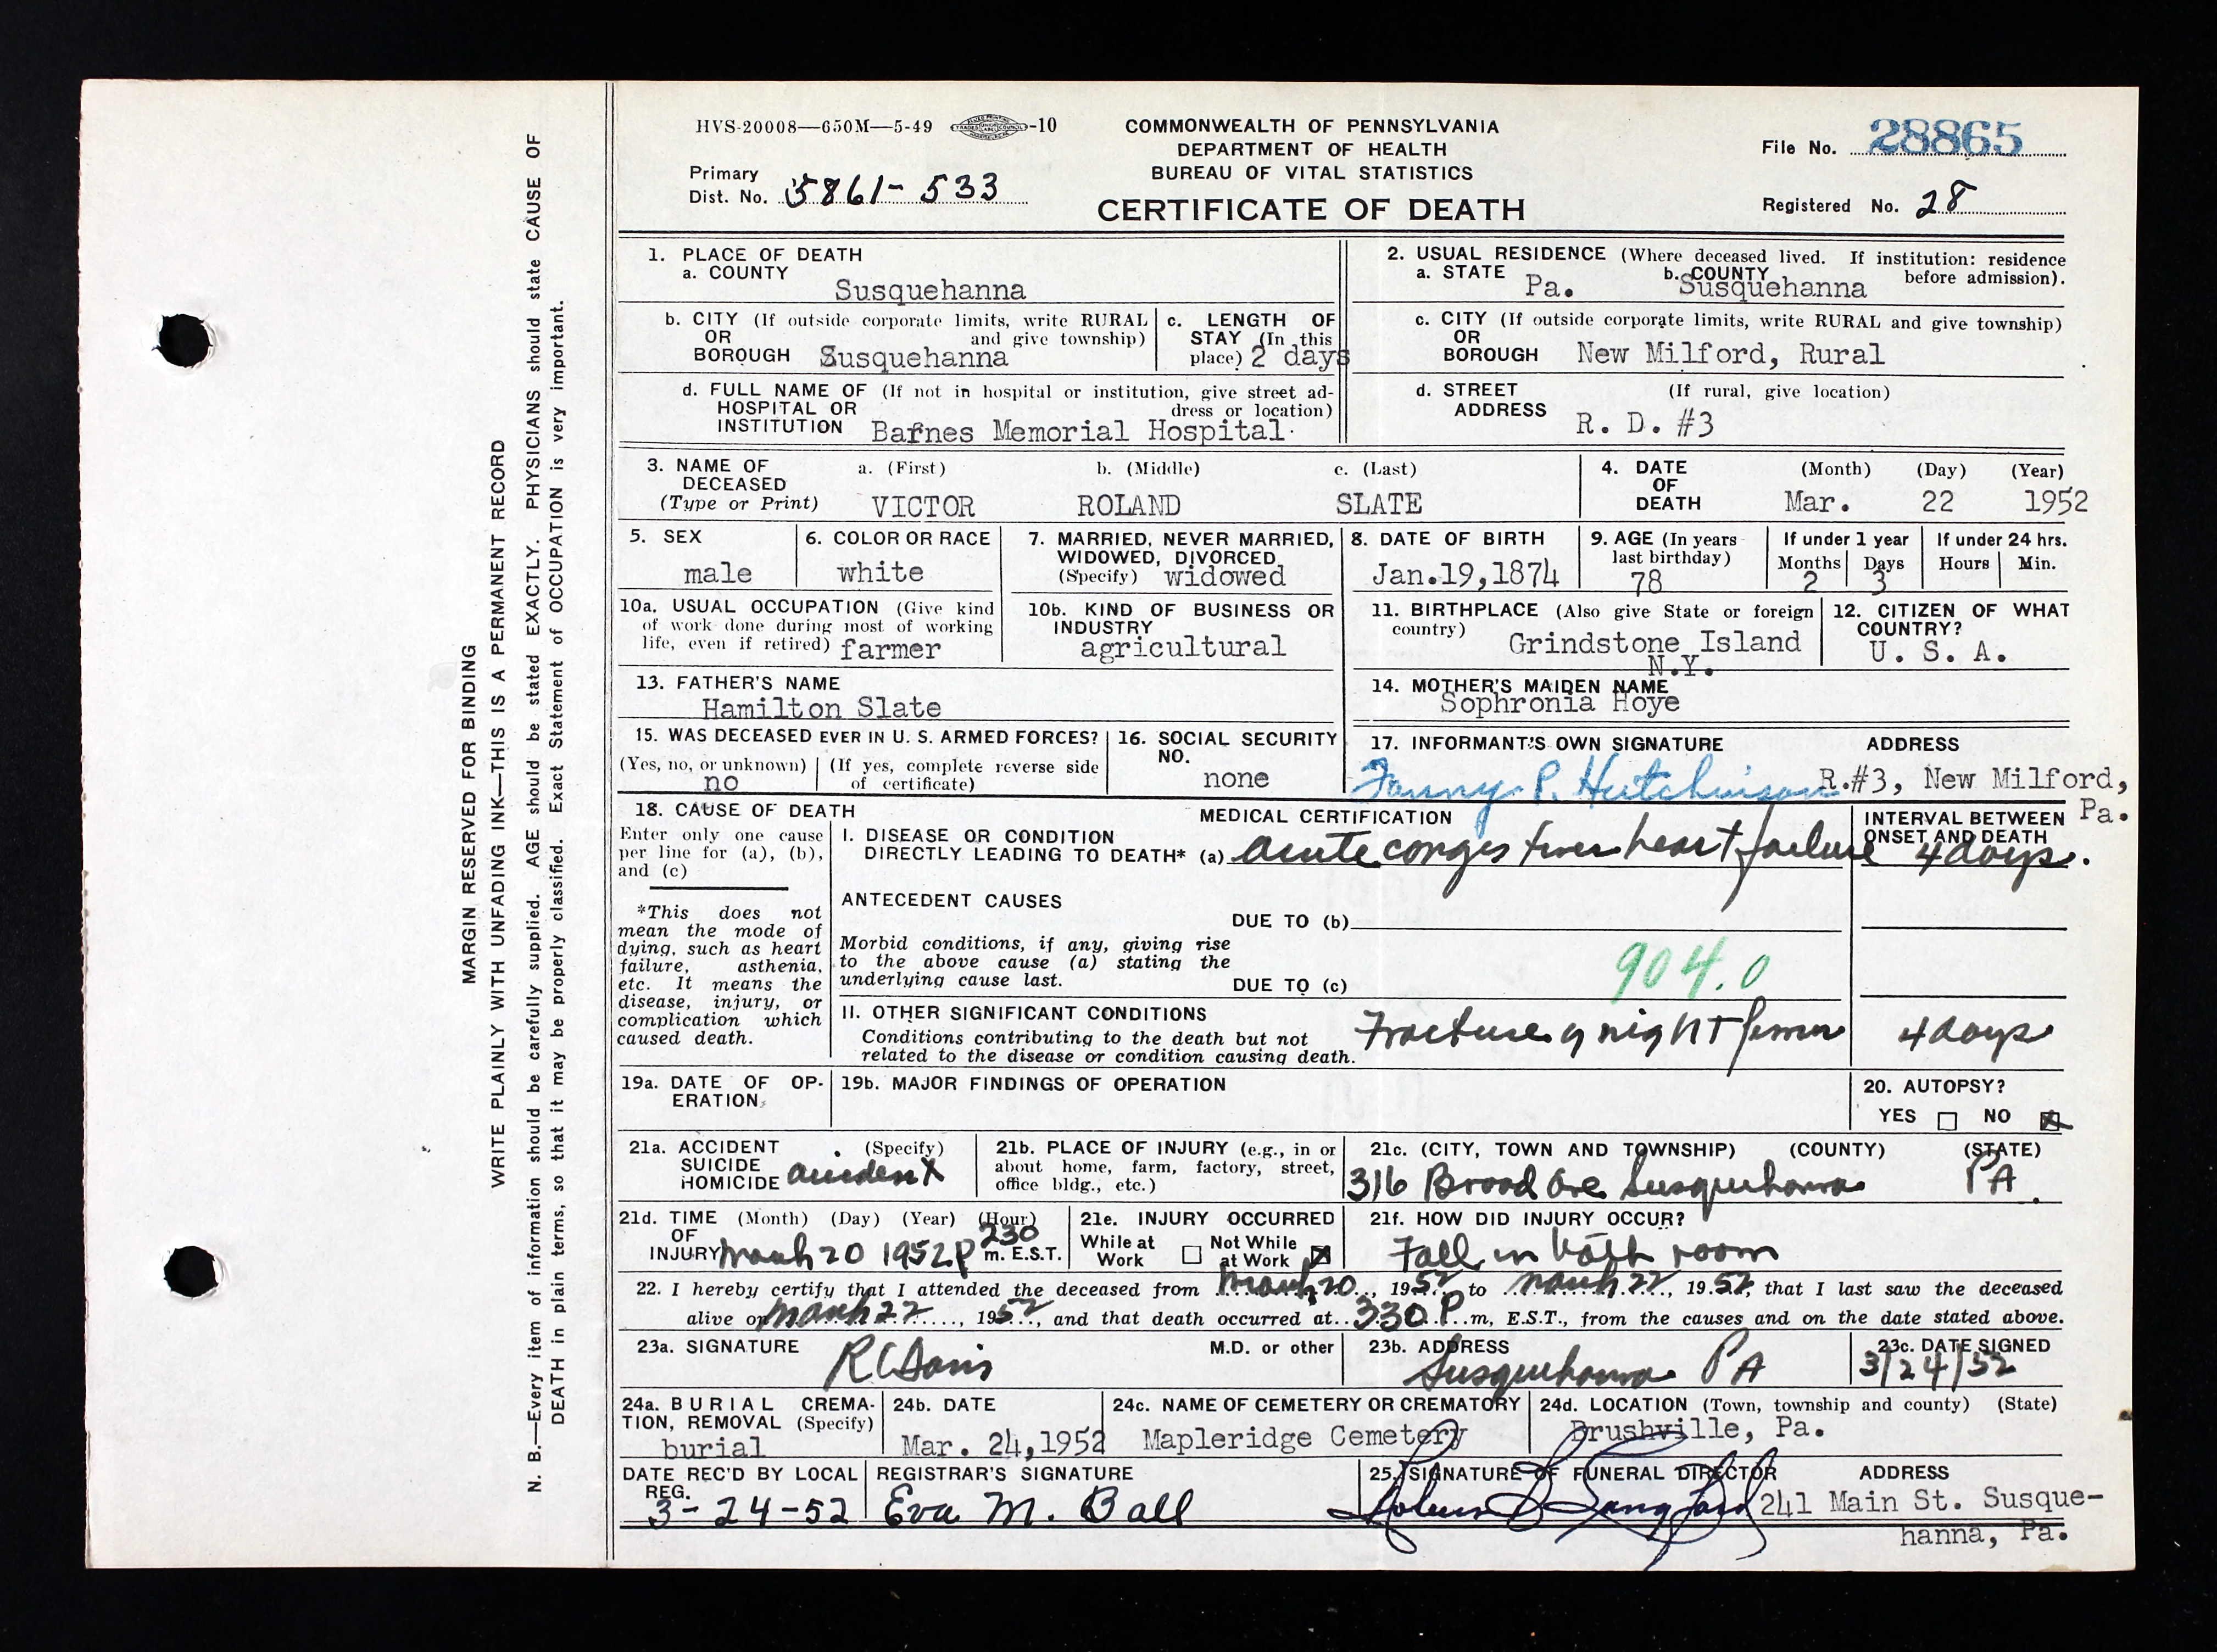 HVS-20008—650M—5-49 -10
COMMONWEALTH OF PENNSYLVANIA
DEPARTMENT OF HEALTH
BUREAU OF VITAL STATISTICS
CERTIFICATE OF DEATH
Primary
Dist. No. 5861- 533
File No. 28865
Registered No. 28
1. PLACE OF DEATH
a. COUNTY
Susquehanna
2. USUAL RESIDENCE (Where deceased lived. If institution: residence
before admission).
a. STATE Pa. b. COUNTY Susquehanna
b. CITY (If outside corporate limits, write RURAL
OR and give township)
BOROUGH Susquehanna
c. LENGTH OF
STAY (In this
place) 2 days
c. CITY (If outside corporate limits, write RURAL and give township)
OR
BOROUGH New Milford, Rural
d. FULL NAME OF (If not in hospital or institution, give street ad-
HOSPITAL OR dress or location)
INSTITUTION Barnes Memorial Hospital
d. STREET (If rural, give location)
ADDRESS R. D. #3
3. NAME OF a. (First) b. (Middle) c. (Last)
DECEASED
(Type or Print) VICTOR ROLAND SLATE
4. DATE (Month) (Day) (Year)
OF
DEATH Mar. 22 1952
5. SEX
male
6. COLOR OR RACE
white
7. MARRIED, NEVER MARRIED,
WIDOWED, DIVORCED
(Specify) widowed
8. DATE OF BIRTH
Jan.19,1874
9. AGE (In years
last birthday)
78
If under 1 year
Months Days
2 3
If under 24 hrs.
Hours Min.
10a. USUAL OCCUPATION (Give kind
of work done during most of working
life, even if retired) farmer
10b. KIND OF BUSINESS OR
INDUSTRY
agricultural
11. BIRTHPLACE (Also give State or foreign
country) Grindstone Island
N.Y.
12. CITIZEN OF WHAT
COUNTRY?
U. S. A.
13. FATHER'S NAME
Hamilton Slate
14. MOTHER'S MAIDEN NAME
Sophronia Hoye
15. WAS DECEASED EVER IN U. S. ARMED FORCES?
(Yes, no, or unknown) (If yes, complete reverse side
no of certificate)
16. SOCIAL SECURITY
NO.
none
17. INFORMANT'S OWN SIGNATURE ADDRESS
Fanny P. Hutchinson R.#3, New Milford,
Pa.
18. CAUSE OF DEATH
Enter only one cause
per line for (a), (b),
and (c)
*This does not
mean the mode of
dying, such as heart
failure, asthenia,
etc. It means the
disease, injury, or
complication which
caused death.
MEDICAL CERTIFICATION
INTERVAL BETWEEN
ONSET AND DEATH
I. DISEASE OR CONDITION
DIRECTLY LEADING TO DEATH* (a) acute congestive heart failure 4 days.
ANTECEDENT CAUSES
DUE TO (b)
Morbid conditions, if any, giving rise
to the above cause (a) stating the
underlying cause last.
DUE TO (c)
904.0
II. OTHER SIGNIFICANT CONDITIONS
Conditions contributing to the death but not
related to the disease or condition causing death.
Fracture of right femur 4 days
19a. DATE OF OP-
ERATION
19b. MAJOR FINDINGS OF OPERATION
20. AUTOPSY?
YES NO
21a. ACCIDENT (Specify)
SUICIDE
HOMICIDE accident
21b. PLACE OF INJURY (e.g., in or
about home, farm, factory, street,
office bldg., etc.)
21c. (CITY, TOWN AND TOWNSHIP) (COUNTY) (STATE)
316 Broad Ave Susquehanna PA.
21d. TIME (Month) (Day) (Year) (Hour)
OF
INJURY March 20 1952 P 230 m. E.S.T.
21e. INJURY OCCURRED
While at Not While
Work at Work
21f. HOW DID INJURY OCCUR?
Fall in bath room
22. I hereby certify that I attended the deceased from March 20, 1952 to March 22, 1952, that I last saw the deceased
alive on March 22, 1952, and that death occurred at 330 P m, E.S.T., from the causes and on the date stated above.
23a. SIGNATURE M.D. or other
R C Davis
23b. ADDRESS
Susquehanna PA
23c. DATE SIGNED
3/24/52
24a. BURIAL CREMA-
TION, REMOVAL (Specify)
burial
24b. DATE
Mar. 24,1952
24c. NAME OF CEMETERY OR CREMATORY
Mapleridge Cemetery
24d. LOCATION (Town, township and county) (State)
Brushville, Pa.
DATE REC'D BY LOCAL
REG.
3-24-52
REGISTRAR'S SIGNATURE
Eva M. Ball
25. SIGNATURE OF FUNERAL DIRECTOR ADDRESS
241 Main St. Susque-
hanna, Pa.
MARGIN RESERVED FOR BINDING
WRITE PLAINLY WITH UNFADING INK—THIS IS A PERMANENT RECORD
N. B.—Every item of information should be carefully supplied. AGE should be stated EXACTLY. PHYSICIANS should state CAUSE OF
DEATH in plain terms, so that it may be properly classified. Exact Statement of OCCUPATION is very important.